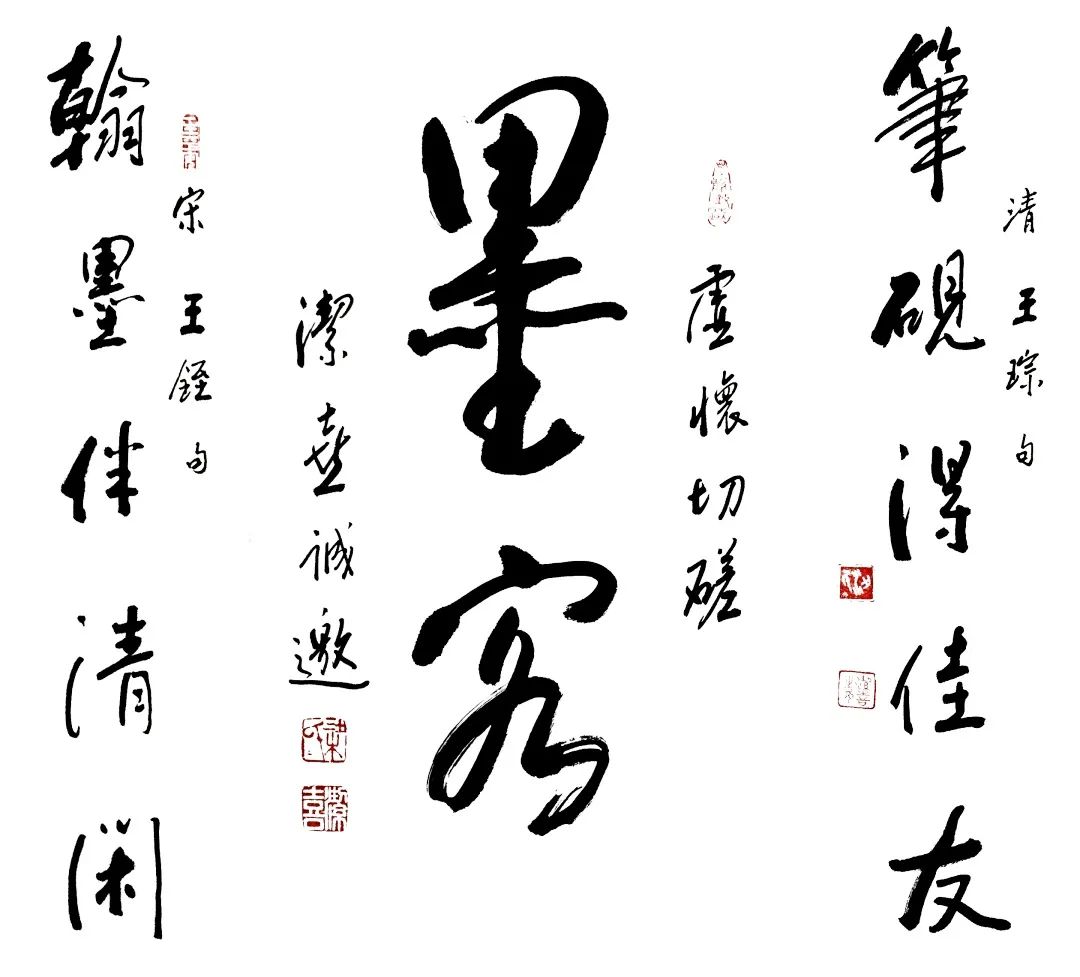 筆硯得佳友
清 王琮 句
虛懷切磋
墨客
潔喜誠邀
潔喜
宋 王銍 句
翰墨伴清閑